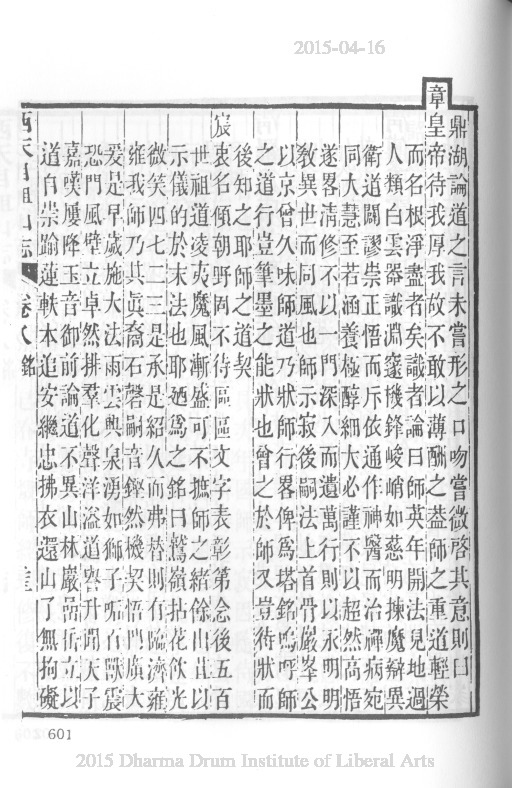 2015-04-16
鼎湖論道之言未嘗形之口吻嘗微啓其意則曰
章皇帝待我厚我故不敢以薄酬之葢師之重道輕榮
而名根淨盡者矣識者論曰師英年開法見地過
人類白雲器識淵邃機鋒峻峭如慈明揀魔辯異
衛道闢謬崇正悟而斥依通作神醫而治禪病宛
同大慧至若涵養極醇細大必謹不以超然高悟
遂畧淸修不以一門深入而遺萬行則以永明明
敎異世而同風也師示寂後嗣法上首骨巖峯公
以京曾久味師道乃狀師行畧俾爲塔銘嗚呼師
之道行豈筆墨之能狀也曾之於師又豈待狀而
後知之耶師之道契
宸衷名傾朝野罔不待區區文字表彰第念後五百
世祖道凌夷魔風漸盛可不摭師之緒餘山茁以
示儀的於末法也耶廼爲之銘曰鷲嶺拈花飮光
微笑四七二三是承是紹久而弗替則有臨濟雍
雍我師乃其眞裔石磬嗣音鏗然機契悟門廣大
爰是早歲施大法雨雲興泉湧如獅子吼百獸震
恐門風壁立卓然排羣化聲洋溢道譽升聞天子
嘉嘆屢降玉音御前論道不異山林嚴喦折立以
道自崇踰蓮軼本追安繼忠拂衣還山了無拘礙
西天目祖山志 卷八 銘
601
2015 Dharma Drum Institute of Liberal Arts